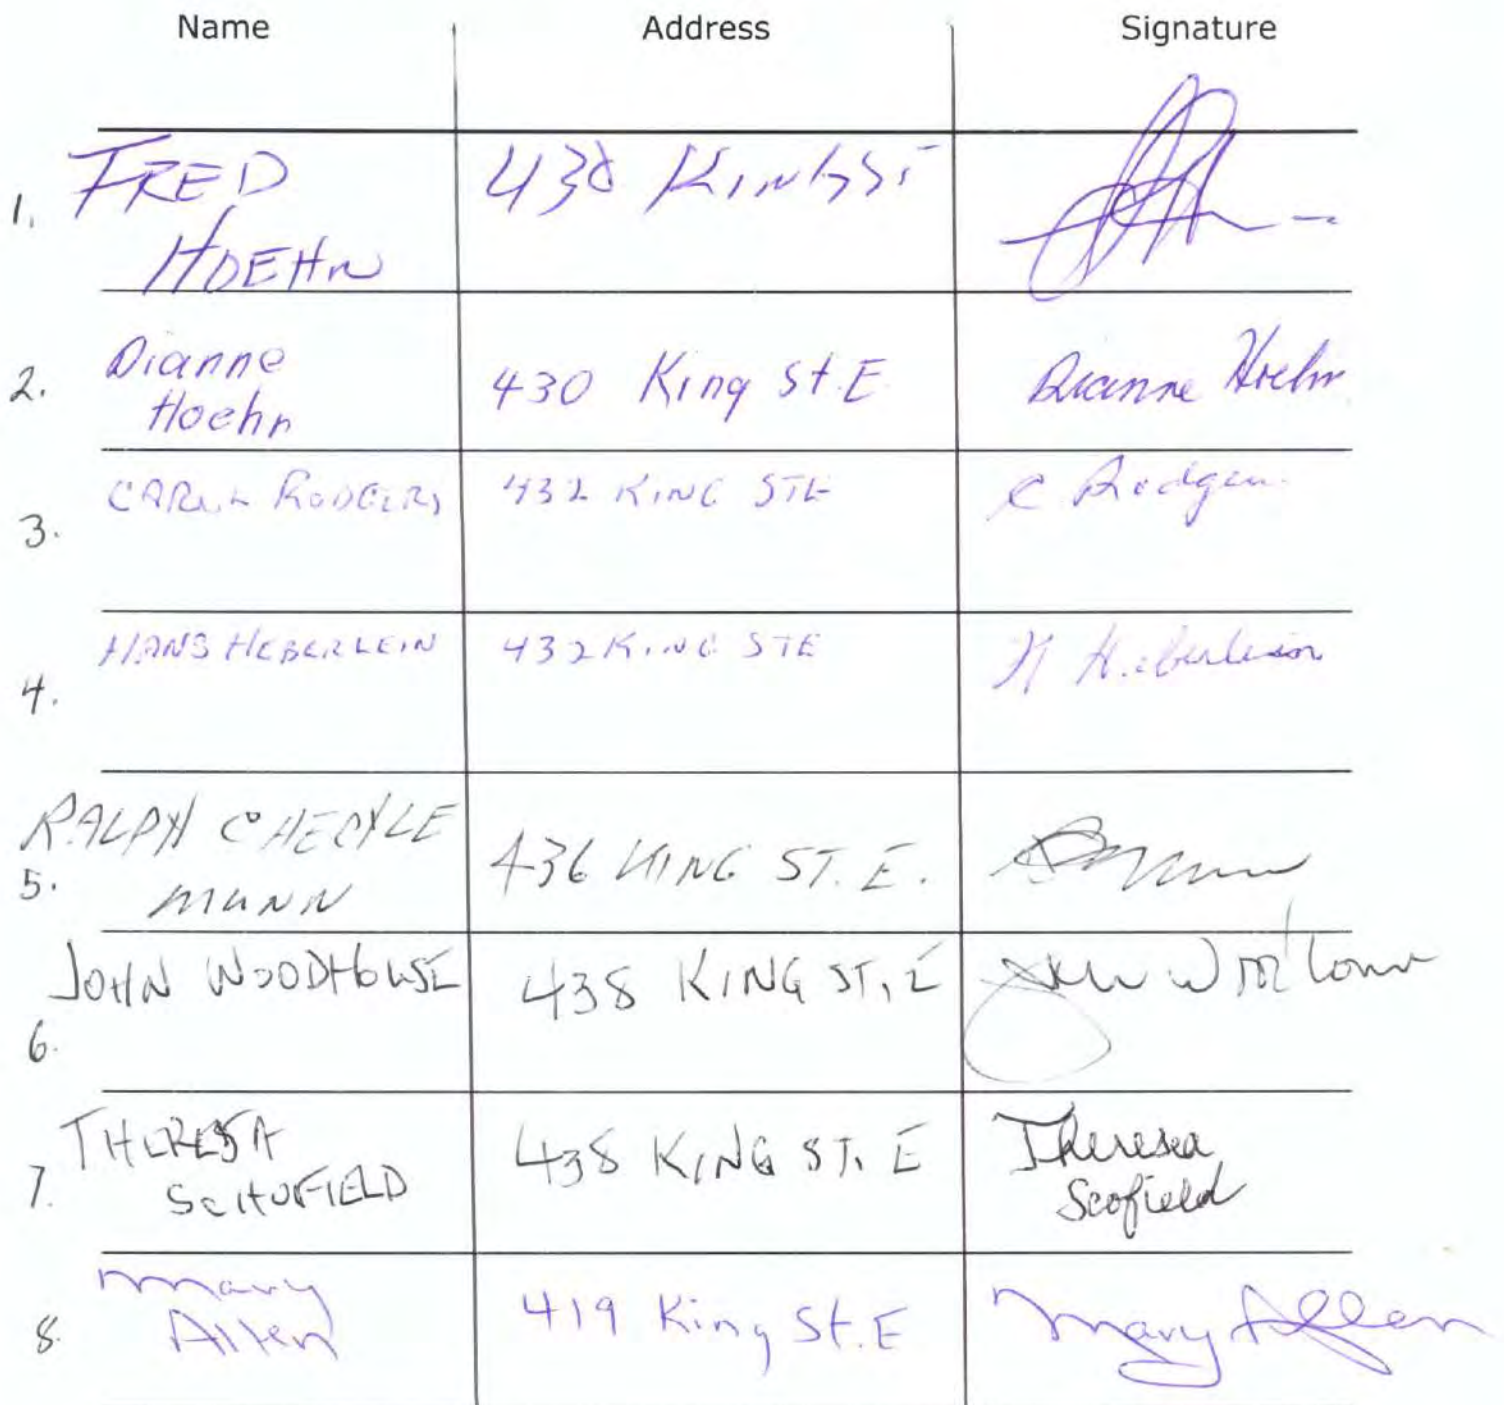 Name Address Signature
1. FRED HOEHN 430 KING ST
2. Dianne Hoehn 430 King St. E Dianne Hoehn
3. CAROL RODGERS 432 KING ST E C Rodgers
4. HANS HEBERLEIN 432 KING ST E H Heberlein
5. RALPH CHERYLE MUNN 436 KING ST. E.
6. JOHN WOODHOUSE 438 KING ST. E John Woodhouse
7. THERESA SCHOFIELD 438 KING ST. E Theresa Scofield
8. Mary Allen 419 King St. E Mary Allen